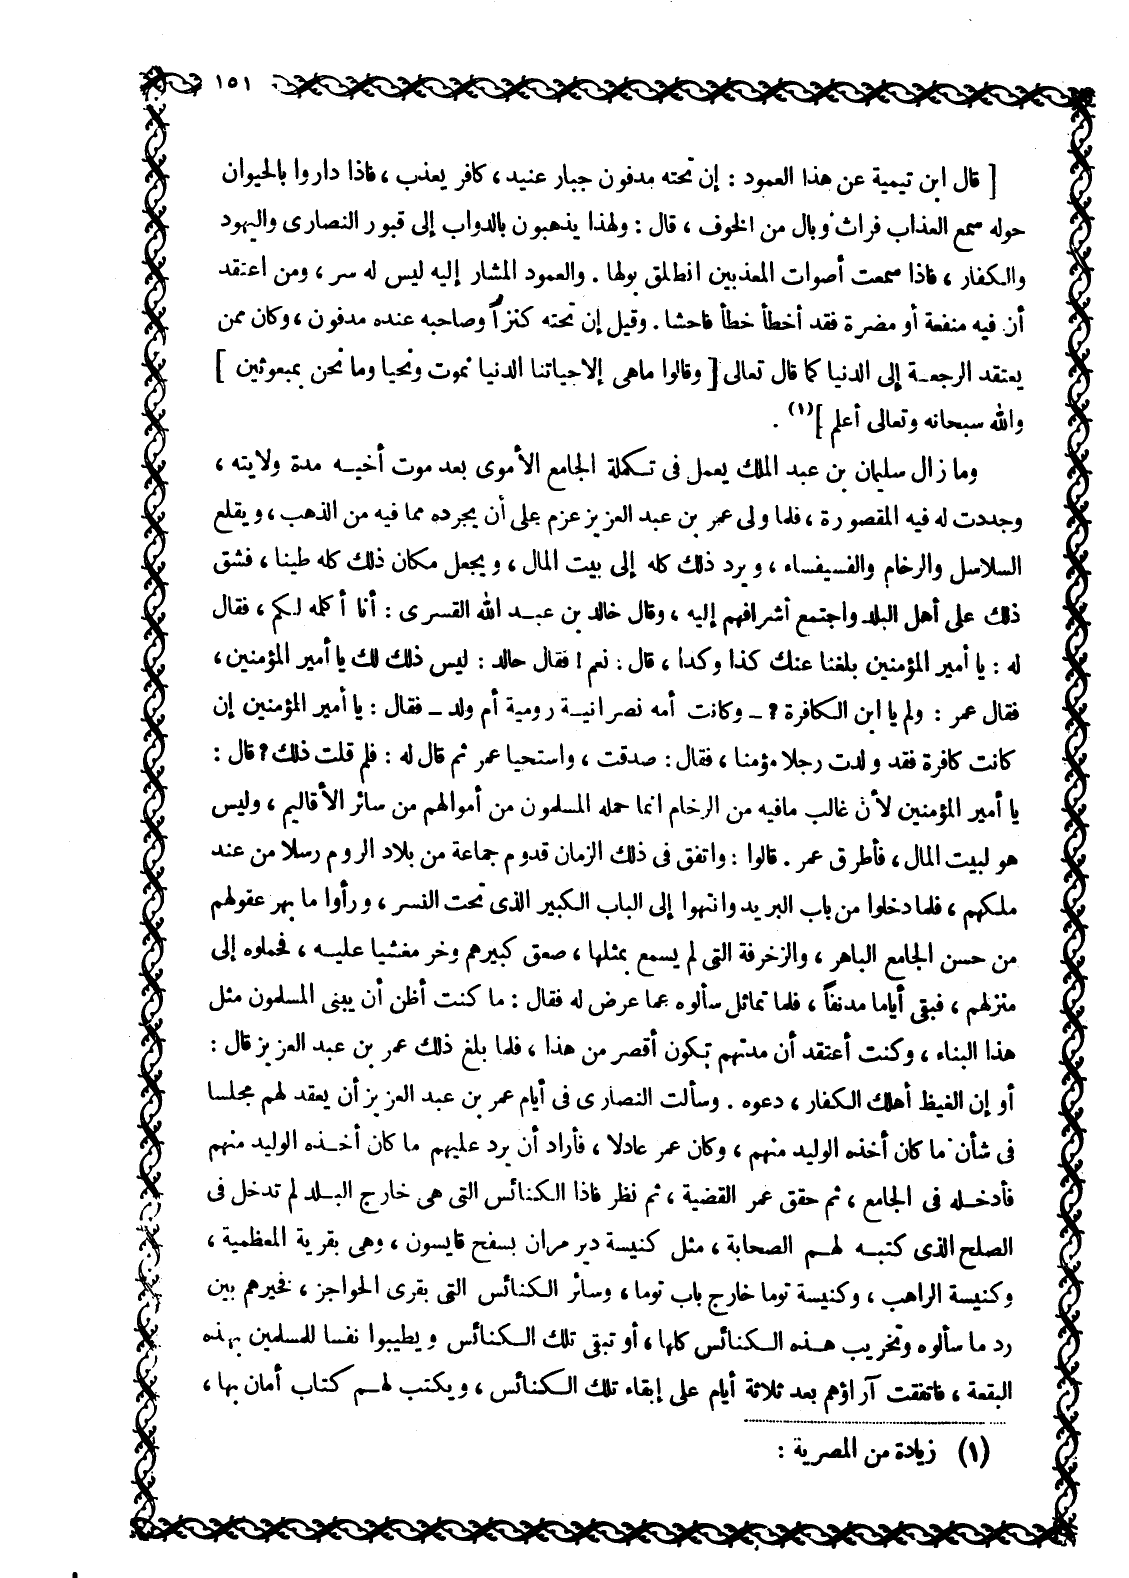 ١٥١
[ قال ابن تيمية عن هذا العمود : إن تحته مدفون جبار عنيد ، كافر يعذب ، فاذا داروا بالحيوان
حوله سمع العذاب فراث وبال من الخوف ، قال : ولهذا يذهبون بالدواب إلى قبور النصارى واليهود
والكفار ، فاذا سمعت أصوات المعذبين انطلق بولها . والعمود المشار إليه ليس له سر ، ومن اعتقد
أن فيه منفعة أو مضرة فقد أخطأ خطأ فاحشا . وقيل إن تحته كنزاً وصاحبه عنده مدفون ، وكان ممن
يعتقد الرجعة إلى الدنيا كما قال تعالى [ وقالوا ماهى إلا حياتنا الدنيا نموت ونحيا وما نحن بمبعوثين ]
والله سبحانه وتعالى أعلم ] (١) .
وما زال سليمان بن عبد الملك يعمل فى تكملة الجامع الأموى بعد موت أخيه مدة ولايته ،
وجددت له فيه المقصورة ، فلما ولى عمر بن عبد العزيز عزم على أن يجرده مما فيه من الذهب ، ويقلع
السلاسل والرخام والفسيفساء ، ويرد ذلك كله إلى بيت المال ، ويجعل مكان ذلك كله طينا ، فشق
ذلك على أهل البلد واجتمع أشرافهم إليه ، وقال خالد بن عبد الله القسرى : أنا أكله لكم ، فقال
له : يا أمير المؤمنين بلغنا عنك كذا وكذا ، قال : نعم ! فقال خالد : ليس ذلك لك يا أمير المؤمنين ،
فقال عمر : ولم يا ابن الكافرة ? ـ وكانت أمه نصرانية رومية أم ولد ـ فقال : يا أمير المؤمنين إن
كانت كافرة فقد ولدت رجلا مؤمنا ، فقال : صدقت ، واستحيا عمر ثم قال له : فلم قلت ذلك ? قال :
يا أمير المؤمنين لأن غالب مافيه من الرخام انما حمله المسلمون من أموالهم من سائر الأقاليم ، وليس
هو لبيت المال ، فأطرق عمر . قالوا : واتفق فى ذلك الزمان قدوم جماعة من بلاد الروم رسلا من عند
ملكهم ، فلما دخلوا من باب البريد وانتهوا إلى الباب الكبير الذى تحت النسر ، ورأوا ما بهر عقولهم
من حسن الجامع الباهر ، والزخرفة التى لم يسمع بمثلها ، صعق كبيرهم وخر مغشيا عليه ، فحملوه إلى
منزلهم ، فبقى أياما مدنفاً ، فلما تماثل سألوه عما عرض له فقال : ما كنت أظن أن يبنى المسلمون مثل
هذا البناء ، وكنت أعتقد أن مدتهم تكون أقصر من هذا ، فلما بلغ ذلك عمر بن عبد العزيز قال :
أو إن الغيظ أهلك الكفار ، دعوه . وسألت النصارى فى أيام عمر بن عبد العزيز أن يعقد لهم مجلسا
فى شأن ما كان أخذه الوليد منهم ، وكان عمر عادلا ، فأراد أن يرد عليهم ما كان أخذه الوليد منهم
فأدخله فى الجامع ، ثم حقق عمر القضية ، ثم نظر فاذا الكنائس التى هى خارج البلد لم تدخل فى
الصلح الذى كتبه لهم الصحابة ، مثل كنيسة دير مران بسفح قايسون ، وهى بقرية المعظمية ،
وكنيسة الراهب ، وكنيسة توما خارج باب توما ، وسائر الكنائس التى بقرى الحواجز ، فخيرهم بين
رد ما سألوه وتخريب هذه الكنائس كلها ، أو تبقى تلك الكنائس ويطيبوا نفسا للمسلمين بهذه
البقعة ، فاتفقت آراؤهم بعد ثلاثة أيام على إبقاء تلك الكنائس ، ويكتب لهم كتاب أمان بها ،
(١) زيادة من المصرية :